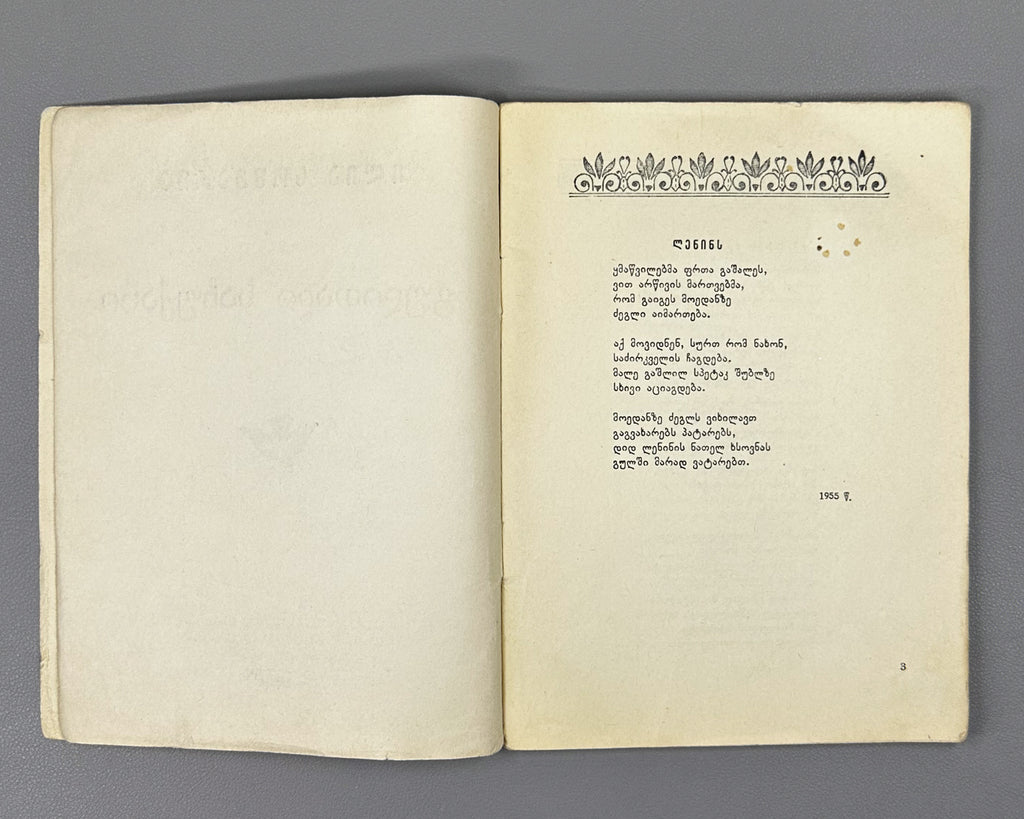 ლენინს
ყმაწვილებმა ფრთა გაშალეს,
ვით არწივის მართვებმა,
რომ გაიგეს მოედანზე
ძეგლი აიმართება.
აქ მოვიდნენ, სურთ რომ ნახონ,
საძირკველის ჩაგდება.
მალე გაშლილ სპეტაკ შუბლზე
სხივი აციაგდება.
მოედანზე ძეგლს ვიხილავთ
გაგვახარებს პატარებს,
დიდ ლენინის ნათელ ხსოვნას
გულში მარად ვატარებთ.
1955 წ.
3